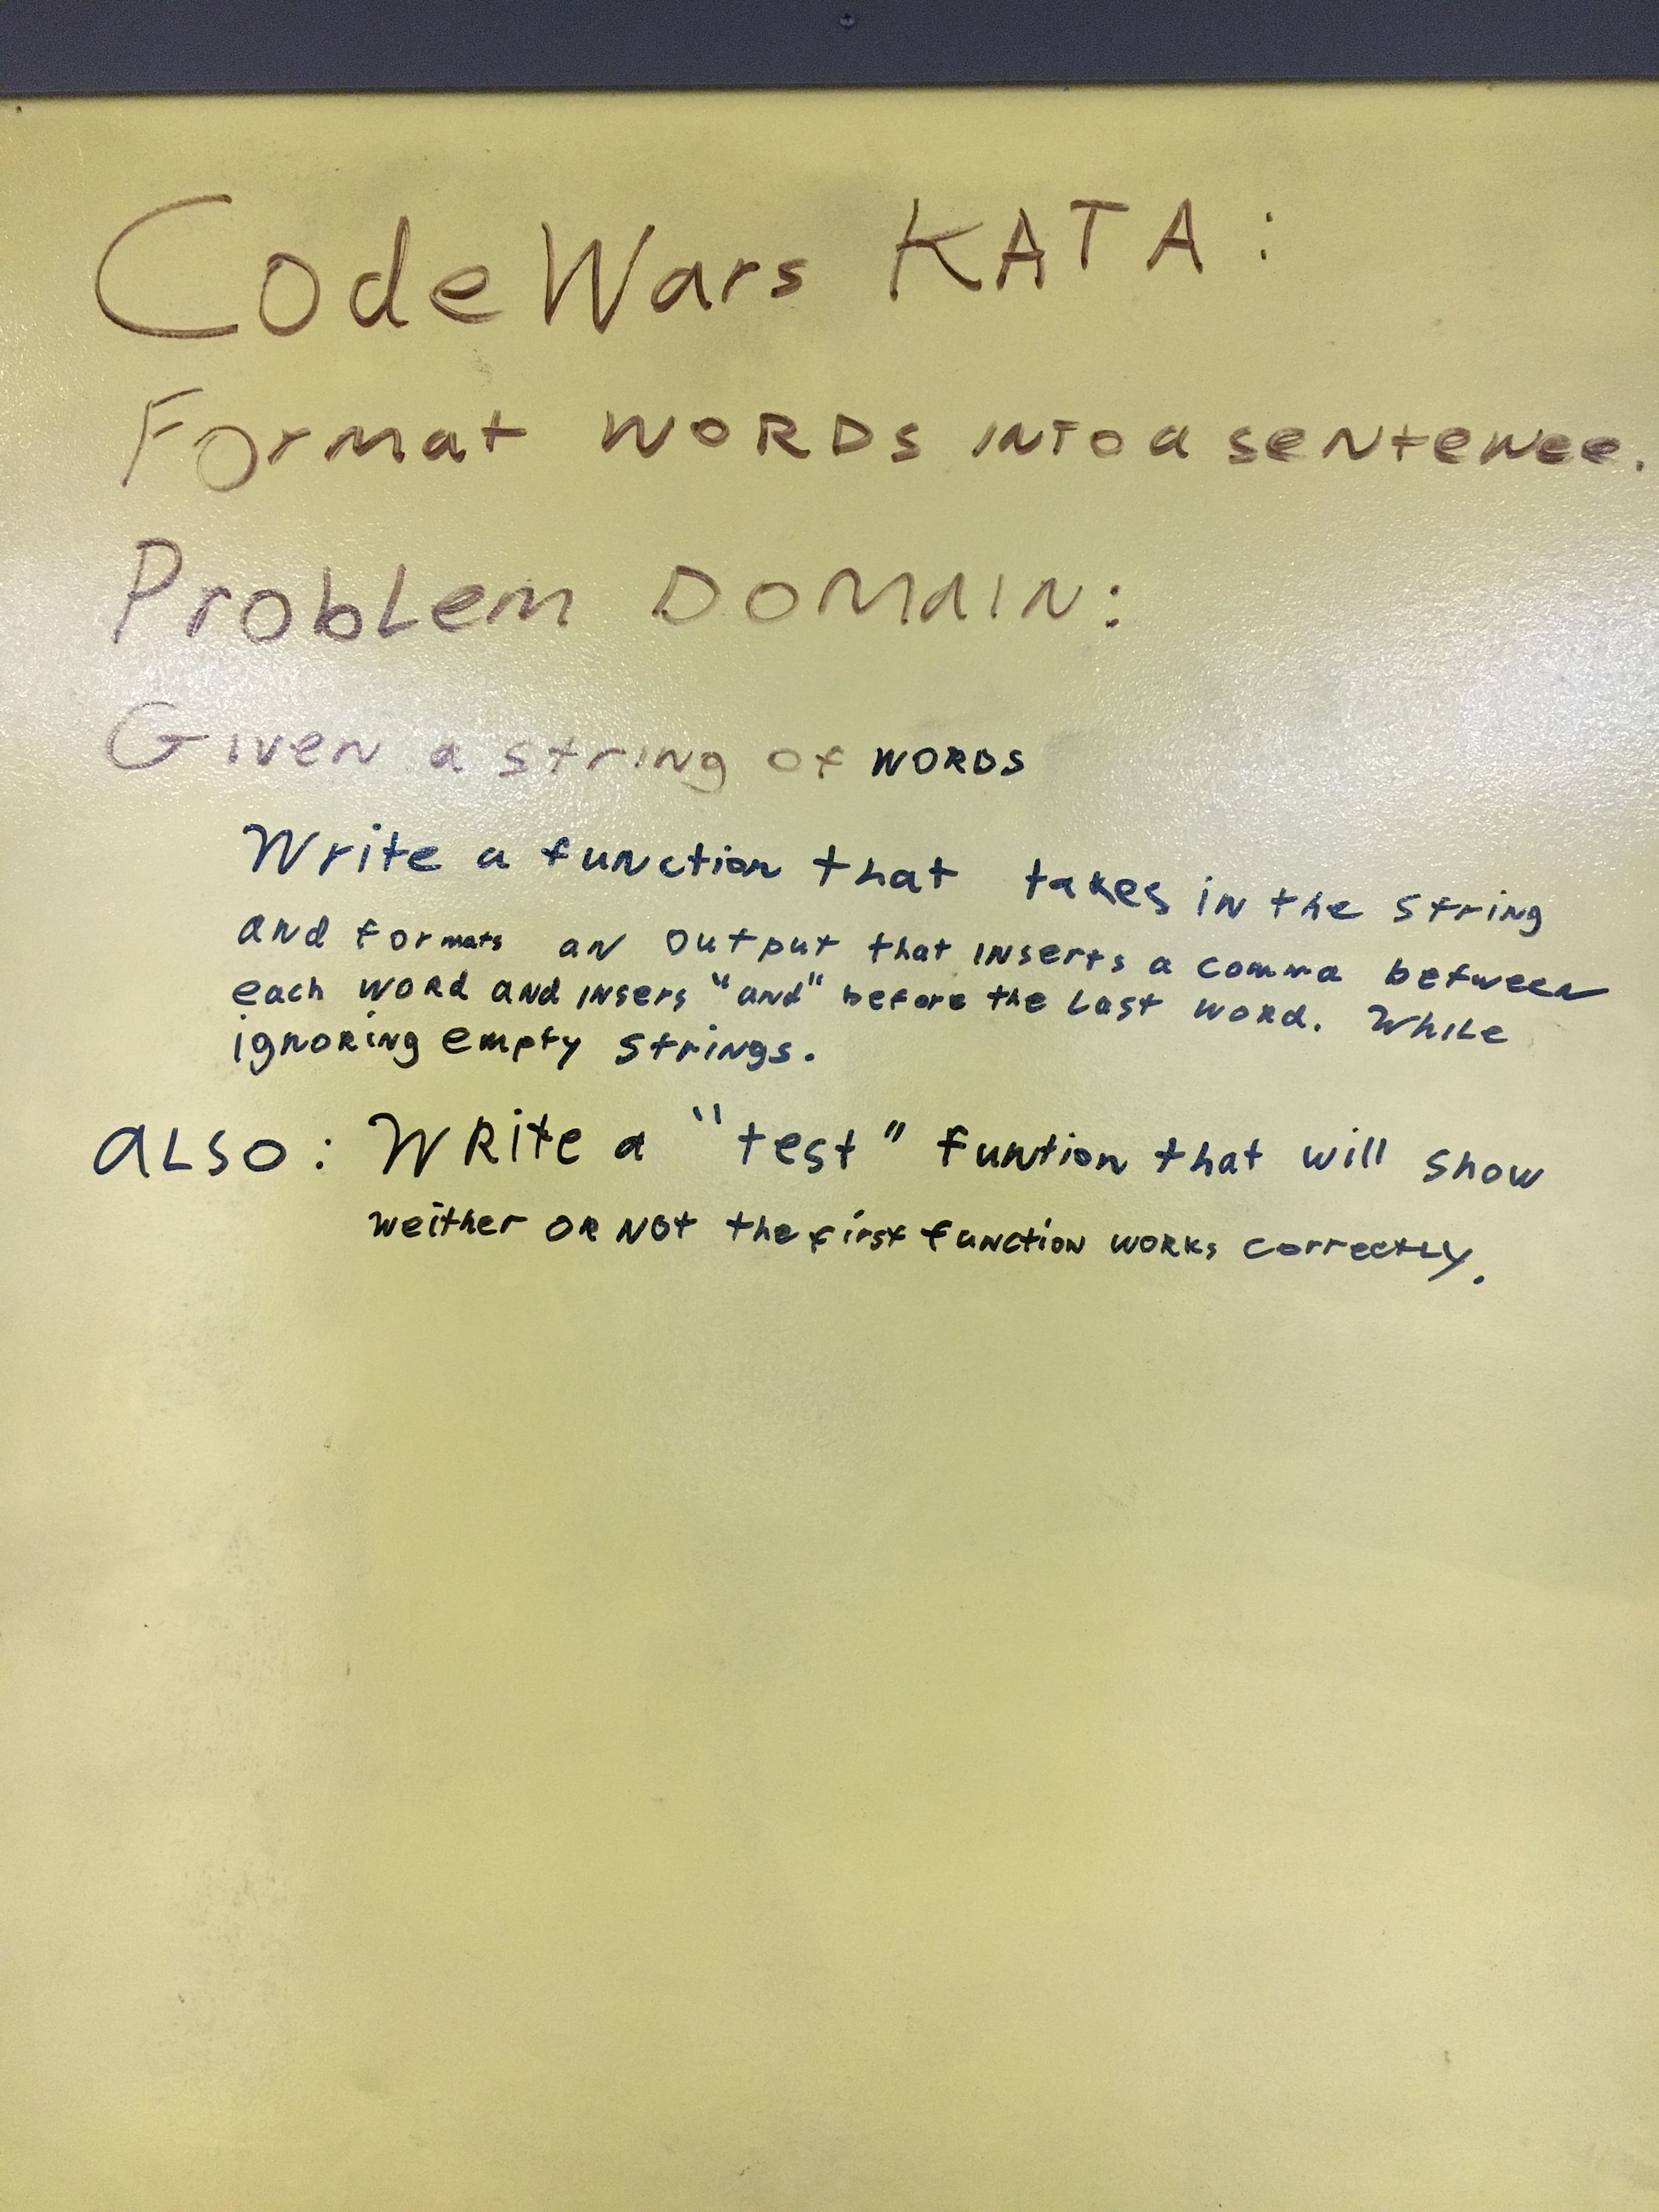 CodeWars KATA:
Format WORDS INTO a sentence.
Problem DOMAIN:
Given a string of WORDS
Write a function that takes in the string
and formats an output that inserts a comma between
each word and insers "and" before the last word. While
ignoring empty strings.
ALSO: Write a "test" funtion that will show
weither OR NOT the first function works correctly.